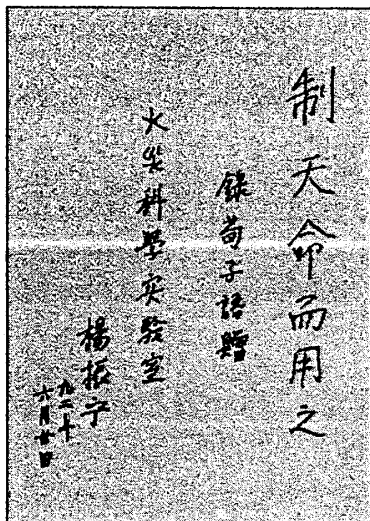 制天命而用之
錄荀子語贈
火災科學实驗室
楊振宁
九二年
六月廿日